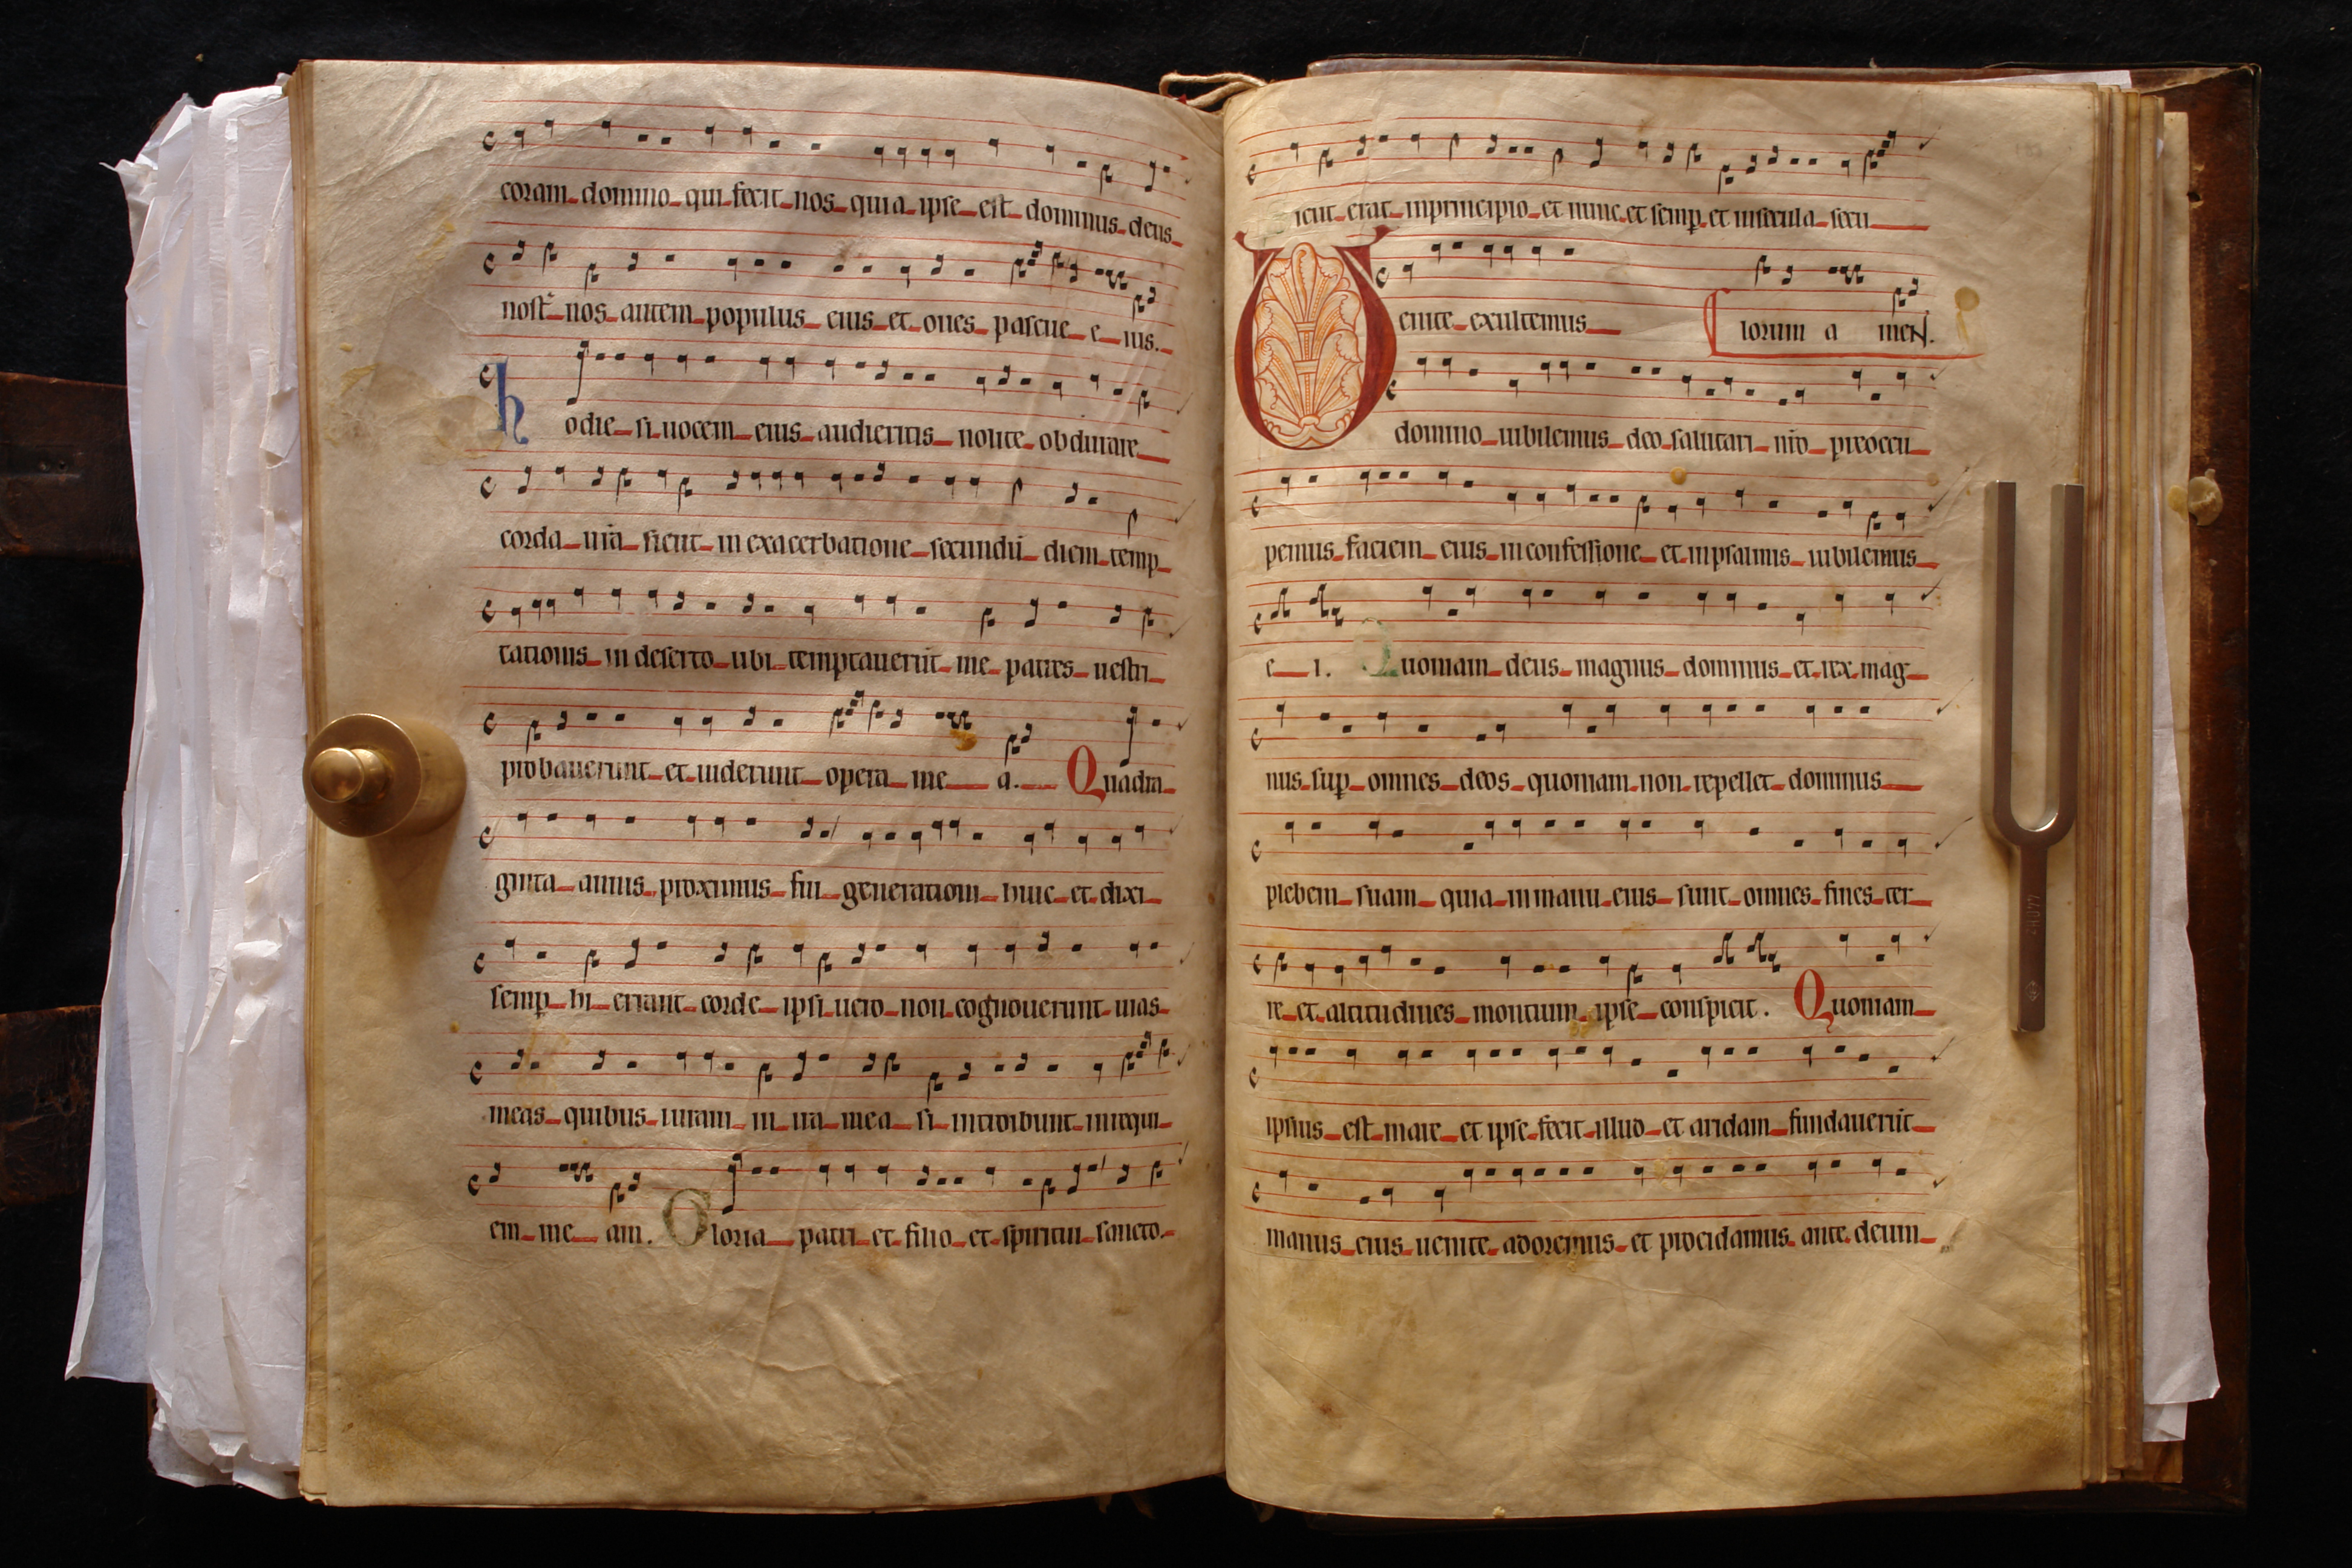 coram domino qui fecit nos quia ipse est dominus deus
nost̄ nos autem populus eius et oues pascue e ius.
hodie si uocem eius audieritis nolite obdurare
corda ur̄a sicut in exacerbatione secundū diem temp
tationis in deserto ubi temptauerūt me patres uestri
probauerunt et uiderunt opera me a. Quadra
ginta annis proximus fui generationi huic et dixi
semꝑ hi errant corde ipsi uero non cognouerunt uias
meas quibus iuraui in ira mea si introibunt in requi
em me am. Gloria patri et filio et spiritui sancto
icut erat inprincipio et nunc et semꝑ et insecula secu
Uenite exultemus lorum a meN.
domino iubilemus deo salutari nr̄o preoccu
pemus faciem eius inconfessione et inpsalmis iubilemus
e i. Quoniam deus magnus dominus et rex mag
nus suꝑ omnes deos quoniam non repellet dominus
plebem suam quia inmanu eius sunt omnes fines ter
re et altitudines montium ipse conspicit. Quoniam
ipsius est mare et ipse fecit illud et aridam fundauerūt
manus eius uenite adoremus et procidamus ante deum
24077